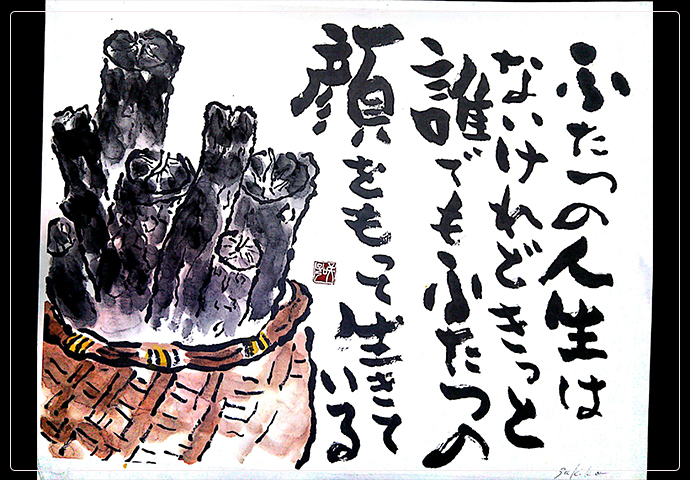 ふたつの人生は
ないけれどきっと
誰でもふたつの
顔をもって生きて
いる